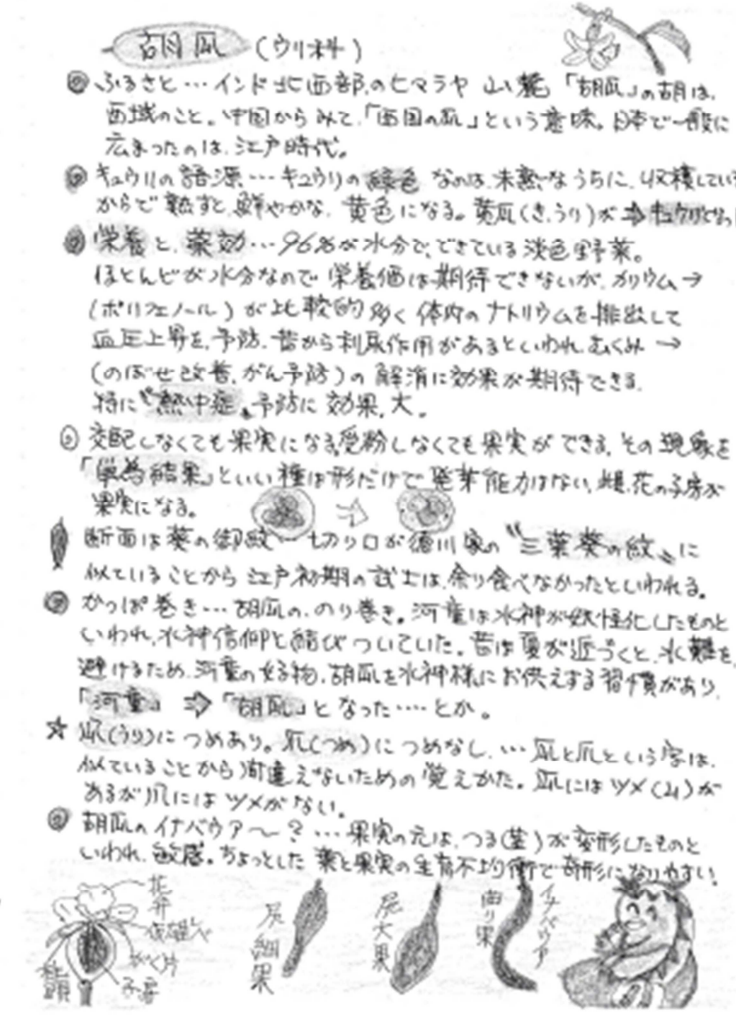 胡瓜 (ウリ科)
ふるさと…インド北西部のヒマラヤ山麓「胡瓜」の胡は、
西域のこと。中国からみて、「西国の瓜」という意味。日本で一般に
広まったのは、江戸時代。
キュウリの語源…キュウリの緑色なのは、未熟なうちに、収穫してい
からで熟すと、鮮やかな、黄色になる。黄瓜(き、うり)が⇒キュウリとなっ
栄養と、薬効…96%が水分で、できている淡色野菜。
ほとんどが水分なので栄養価は期待できないが、カリウム→
(ポリフェノール)が比較的多く体内のナトリウムを排出して
血圧上昇を、予防、昔から利尿作用があるといわれ、むくみ→
(のぼせ改善、がん予防)の解消に効果が期待できる。
特に〝熱中症〟予防に効果、大。
交配しなくても果実になる。受粉しなくても果実ができる。その現象を
「単為結果」といい種は形だけで発芽能力はない、雌花の子房が
果実になる。
断面は葵の御紋…切り口が徳川家の〝三葉葵の紋〟に
似ていることから江戸初期の武士は、余り食べなかったといわれる。
かっぱ巻き…胡瓜の、のり巻き。河童は水神が妖怪化したものと
いわれ、水神信仰と結びついていた。昔は夏が近づくと、水難を、
避けるため、河童の好物、胡瓜を水神様にお供えする習慣があり、
「河童」⇒「胡瓜」となった‥‥とか。
☆ 瓜(うり)につめあり。爪(つめ)につめなし、…瓜と爪という字は、
似ていることから間違えないための覚えかた。瓜にはツメ(ム)が
あるが爪にはツメがない。
胡瓜のイナバウアー〜?…果実の元は、つる(茎)が変形したものと
いわれ、敏感。ちょっとした葉と果実の生育不均衡で奇形になりやすい。
花弁
仮雄しべ
がく片
子房
柱頭
尻細果
尻太果
曲り果
イナバウアー